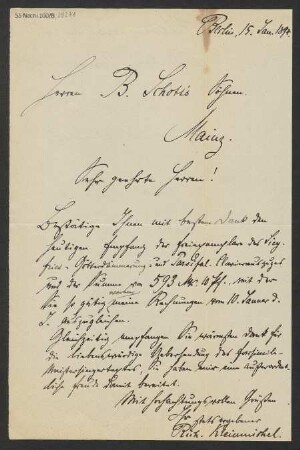 Berlin, 15. Jan. 189
Herren B. Schott's Söhnen.
Mainz.
Sehr geehrte Herren!
Bestätige Ihnen mit bestem Dank den
heutigen Empfang der Freiexemplare des Sieg-
fried-, Götterdämmerung- und Parsifal-Clavierauszuges
und der Summe von 593 M. 10 Pf., mit der
Sie so gütig waren meine Rechnungen vom 10. Januar d.
J. auszugleichen.
Gleichzeitig empfangen Sie wärmsten Dank für
die liebenswürdige Uebersendung des Facsimile-
Meistersingertextes; Sie haben mir eine außerordent-
liche Freude damit bereitet.
Mit hochachtungsvollen Grüßen
Ihr
stets ergebener
Rich. Kleinmichel.